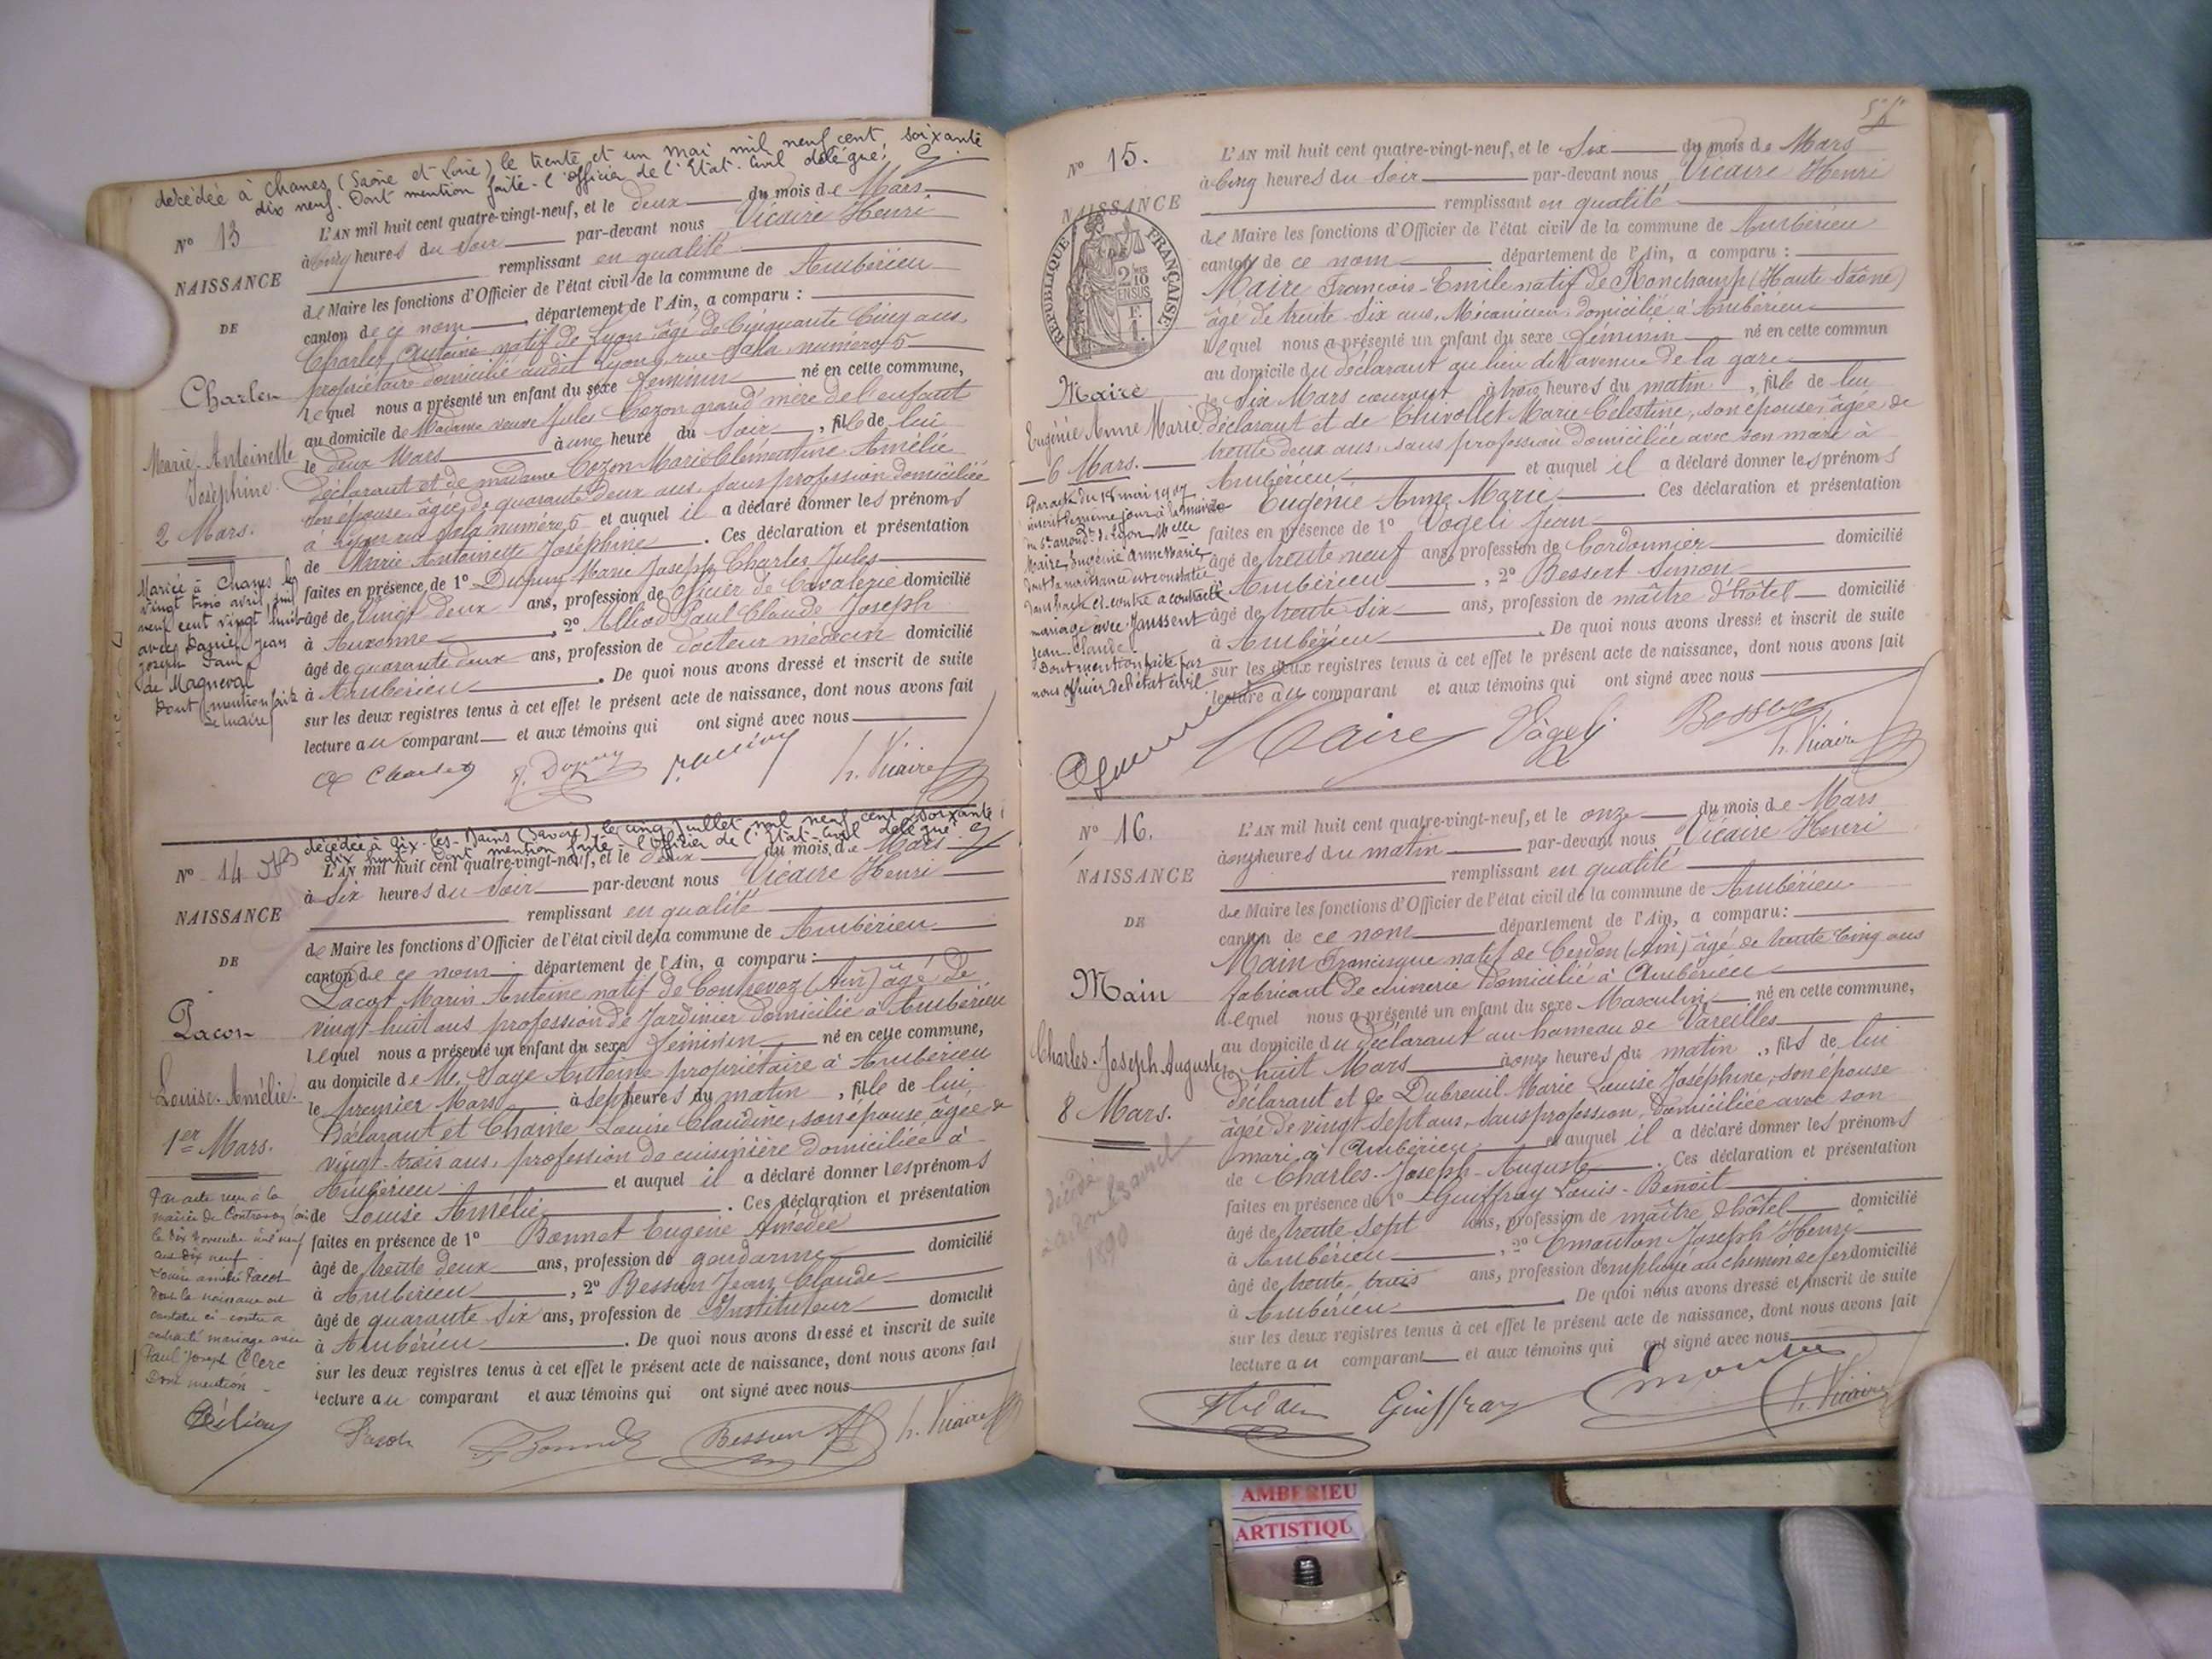 décédée à Chanes (Saône et Loire) le trente et un Mai mil neuf cent soixante
dix neuf. Dont mention faite - l'Officier de l'Etat-Civil délégué,
N° 13
L'AN mil huit cent quatre-vingt-neuf, et le deux du mois de Mars
à Cinq heures du Soir par-devant nous Vicaire Henri
NAISSANCE
remplissant en qualité
de Maire les fonctions d'Officier de l'état civil de la commune de Ambérieu
DE
canton de ce nom, département de l'Ain, a comparu :
Charles Antoine natif de Lyon âgé de Cinquante Cinq ans
propriétaire domicilié audit Lyon, rue Sala numéro 5
lequel nous a présenté un enfant du sexe féminin né en cette commune,
au domicile de Madame veuve Jules Cozon grand'mère de l'enfant
le deux Mars à une heure du Soir, fille de lui
Marie-Antoinette
Joséphine
2 Mars.
déclarant et de madame Cozon Marie Clémentine Amélie
son épouse, âgée de quarante deux ans, sans profession domiciliée
à Lyon rue Sala numéro 5 et auquel il a déclaré donner les prénoms
de Marie Antoinette Joséphine. Ces déclaration et présentation
faites en présence de 1° Dupuy Marie Joseph Charles Jules
âgé de Vingt deux ans, profession de Officier de Cavalerie domicilié
à Auxonne, 2° Alliod Paul Claude Joseph
âgé de quarante deux ans, profession de docteur médecin domicilié
à Ambérieu. De quoi nous avons dressé et inscrit de suite
sur les deux registres tenus à cet effet le présent acte de naissance, dont nous avons fait
lecture au comparant et aux témoins qui ont signé avec nous
Mariée à Chanes le
vingt trois avril mil
neuf cent vingt huit
avec Daniel Jean
Joseph Paul
de Magneval
Dont mention faite
Le maire
J. Dupuy
h. Vicaire
décédée à Aix-les-Bains (Savoie) le cinq Juillet mil neuf cent soixante
dix huit. Dont mention faite - l'Officier de l'Etat-Civil délégué
N° 14
L'AN mil huit cent quatre-vingt-neuf, et le deux du mois de Mars
à Six heures du Soir par-devant nous Vicaire Henri
NAISSANCE
remplissant en qualité
de Maire les fonctions d'Officier de l'état civil de la commune de Ambérieu
DE
canton de ce nom département de l'Ain, a comparu :
Pacot Marin Antoine natif de Contrevoz (Ain) âgé de
vingt-huit ans profession de Jardinier domicilié à Ambérieu
lequel nous a présenté un enfant du sexe féminin né en cette commune,
au domicile de M. Sage Antoine propriétaire à Ambérieu
Louise-Amélie.
1er Mars.
le premier Mars à sept heures du matin, fille de lui
Déclarant et Chaine Louise Claudine, son épouse âgée de
vingt-trois ans, profession de cuisinière domiciliée à
Ambérieu et auquel il a déclaré donner les prénoms
de Louise Amélie. Ces déclaration et présentation
faites en présence de 1° Bonnet Eugène Amédée
âgé de trente deux ans, profession de gendarme domicilié
à Ambérieu, 2° Besson Jean Claude
âgé de quarante Six ans, profession de Instituteur domicilié
à Ambérieu. De quoi nous avons dressé et inscrit de suite
sur les deux registres tenus à cet effet le présent acte de naissance, dont nous avons fait
lecture au comparant et aux témoins qui ont signé avec nous
Par acte reçu à la
mairie de Contrevoz (Ain)
le dix novembre mil neuf
cent dix neuf
Louise Amélie Pacot
dont la naissance est
constatée ci-contre a
contracté mariage avec
Paul Joseph Clerc
Dont mention
Pacot
Bonnet
Besson
h. Vicaire
N° 15.
L'AN mil huit cent quatre-vingt-neuf, et le Six du mois de Mars
à Cinq heures du Soir par-devant nous Vicaire Henri
NAISSANCE
remplissant en qualité
REPUBLIQUE FRANÇAISE
2/10 EN SUS
de Maire les fonctions d'Officier de l'état civil de la commune de Ambérieu
canton de ce nom département de l'Ain, a comparu :
Maire François-Emile natif de Ronchamp (Haute Saône)
âgé de trente-Six ans, Mécanicien, domicilié à Ambérieu
lequel nous a présenté un enfant du sexe féminin né en cette commun
au domicile du déclarant au lieu dit avenue de la gare
Maire
Eugénie Anne Marie
6 Mars.
le Six Mars courant à trois heures du matin, fille de lui
déclarant et de Chivollet Marie Célestine, son épouse, âgée de
trente deux ans, sans profession domiciliée avec son mari à
Ambérieu et auquel il a déclaré donner les prénoms
Eugénie Anne Marie. Ces déclaration et présentation
faites en présence de 1° Vogeli Jean
âgé de trente neuf ans, profession de Cordonnier domicilié
à Ambérieu, 2° Bessert Simon
âgé de trente-Six ans, profession de maître d'hôtel domicilié
à Ambérieu. De quoi nous avons dressé et inscrit de suite
sur les deux registres tenus à cet effet le présent acte de naissance, dont nous avons fait
lecture au comparant et aux témoins qui ont signé avec nous
Par acte du 18 mai 1907
inscrit le même jour à la mairie
du 5e arrondt de Lyon Melle
Maire, Eugénie Anne Marie
dont la naissance est constatée
dans l'acte ci-contre a contracté
mariage avec Jaussent
Jean-Claude
Dont mention faite par
nous officier de l'état civil
Maire
Vögeli
h. Vicaire
N° 16.
L'AN mil huit cent quatre-vingt-neuf, et le onze du mois de Mars
à onze heures du matin par-devant nous Vicaire Henri
NAISSANCE
remplissant en qualité
de Maire les fonctions d'Officier de l'état civil de la commune de Ambérieu
DE
canton de ce nom département de l'Ain, a comparu :
Main Francisque natif de Cerdon (Ain) âgé de trente Cinq ans
fabricant de cuivrerie domicilié à Ambérieu
Main
lequel nous a présenté un enfant du sexe Masculin né en cette commune,
au domicile du Déclarant au hameau de Vareilles
Charles-Joseph Auguste
8 Mars.
le huit Mars à onze heures du matin, fils de lui
déclarant et de Dubreuil Marie Louise Joséphine, son épouse
âgée de vingt-sept ans, sans profession, domiciliée avec son
mari à Ambérieu et auquel il a déclaré donner les prénoms
de Charles-Joseph-Auguste. Ces déclaration et présentation
faites en présence de 1° Guiffray Louis-Benoit
âgé de trente-Sept ans, profession de maître d'hôtel domicilié
à Ambérieu, 2° Emonton Joseph Henri
âgé de trente-trois ans, profession d'employé au chemin de fer domicilié
à Ambérieu. De quoi nous avons dressé et inscrit de suite
sur les deux registres tenus à cet effet le présent acte de naissance, dont nous avons fait
lecture au comparant et aux témoins qui ont signé avec nous
décédé
1890
Guiffray
h. Vicaire
AMBERIEU
ARTISTIQU